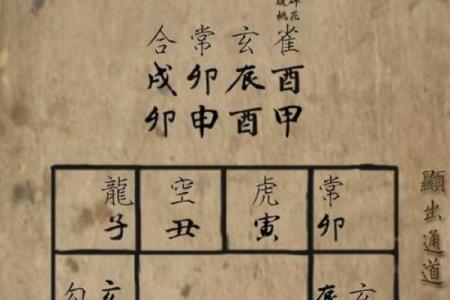 桃花
合常玄雀
戌卯辰酉
卯申酉甲
龍空虎常
子丑寅卯
顯出通道
玄
辰